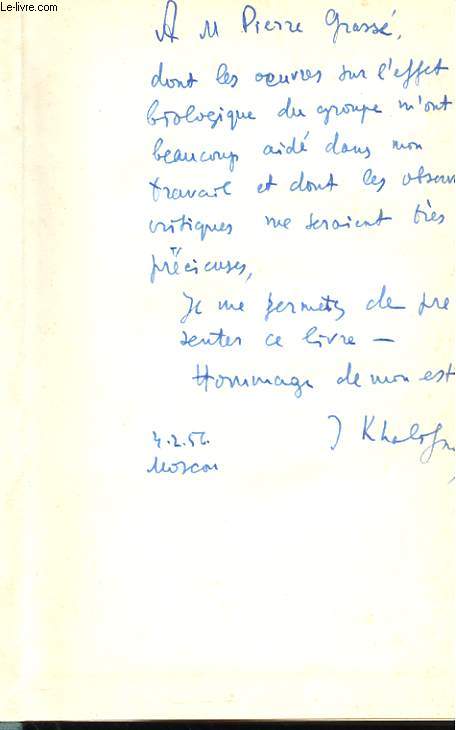 Le-livre.com
A M Pierre Grassé,
dont les œuvres sur l'effet
biologique du groupe m'ont
beaucoup aidé dans mon
travail et dont les observ
critiques me seraient très
précieuses,
Je me permets de pre
senter ce livre —
Hommage de mon est
4.2.56.
J
Moscou